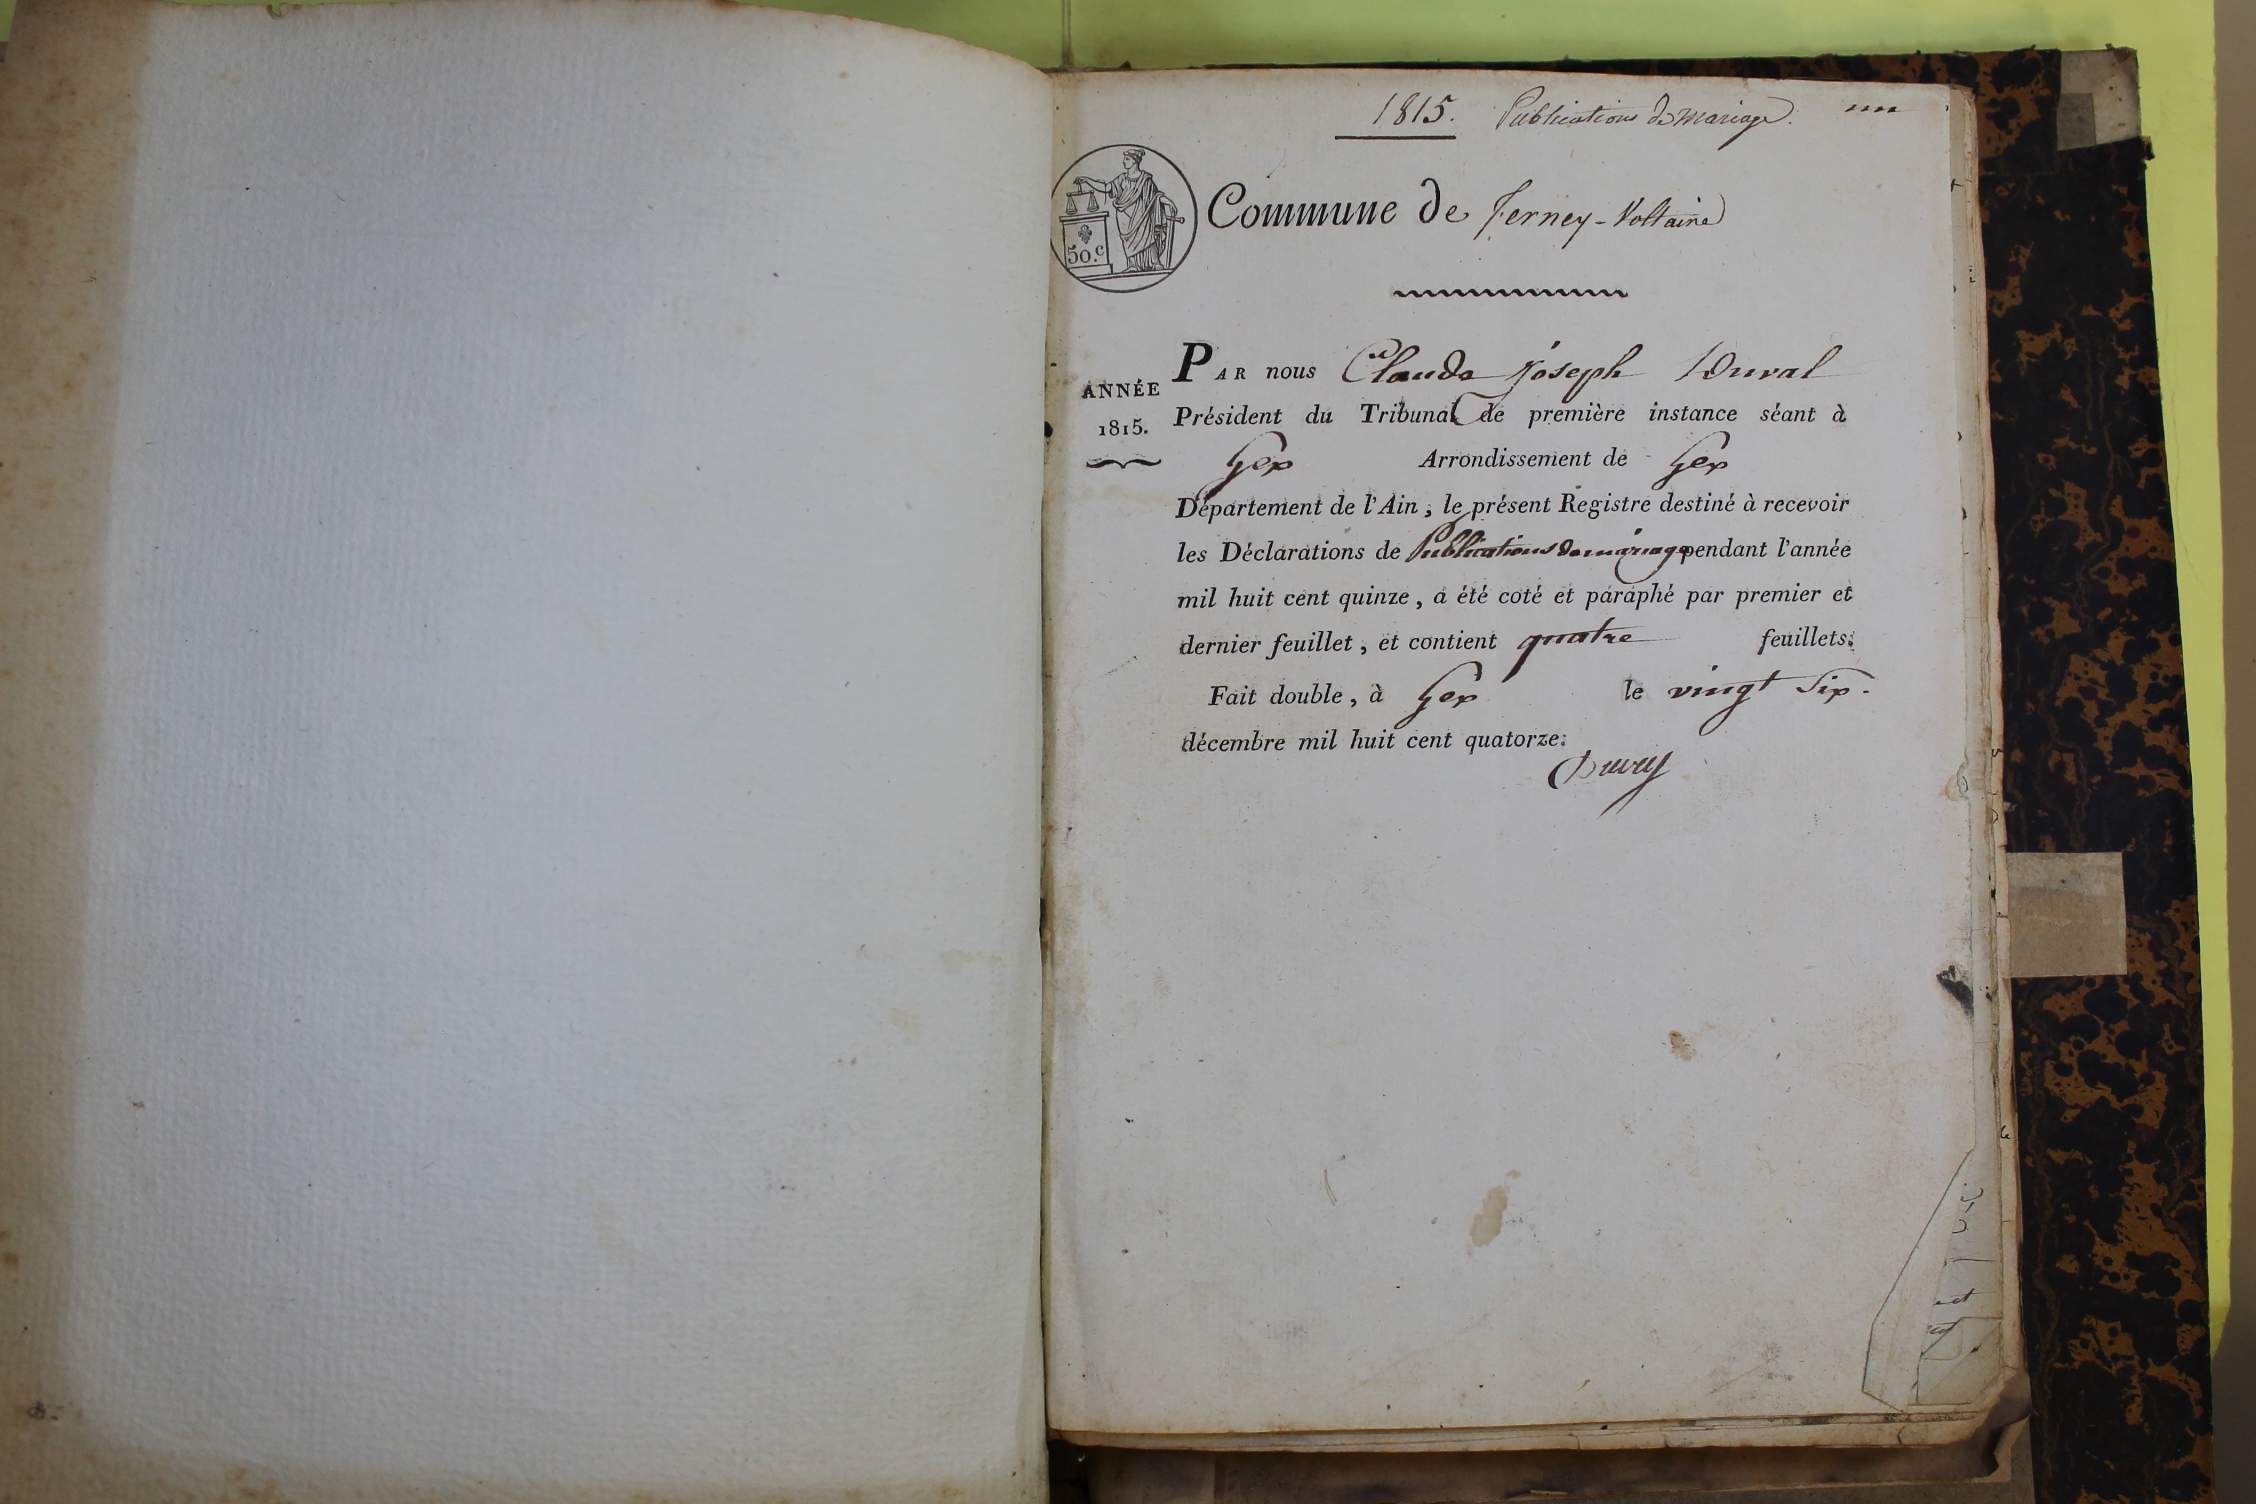 1815. Publications de mariage.
50.c
Commune de Ferney-Voltaire
ANNÉE
1815.
PAR nous Claude Joseph Duval
Président du Tribunal de première instance séant à
Gex Arrondissement de Gex
Département de l'Ain, le présent Registre destiné à recevoir
les Déclarations de Publications de mariage pendant l'année
mil huit cent quinze, a été coté et paraphé par premier et
dernier feuillet, et contient quatre feuillets.
Fait double, à Gex le vingt Six.
décembre mil huit cent quatorze.